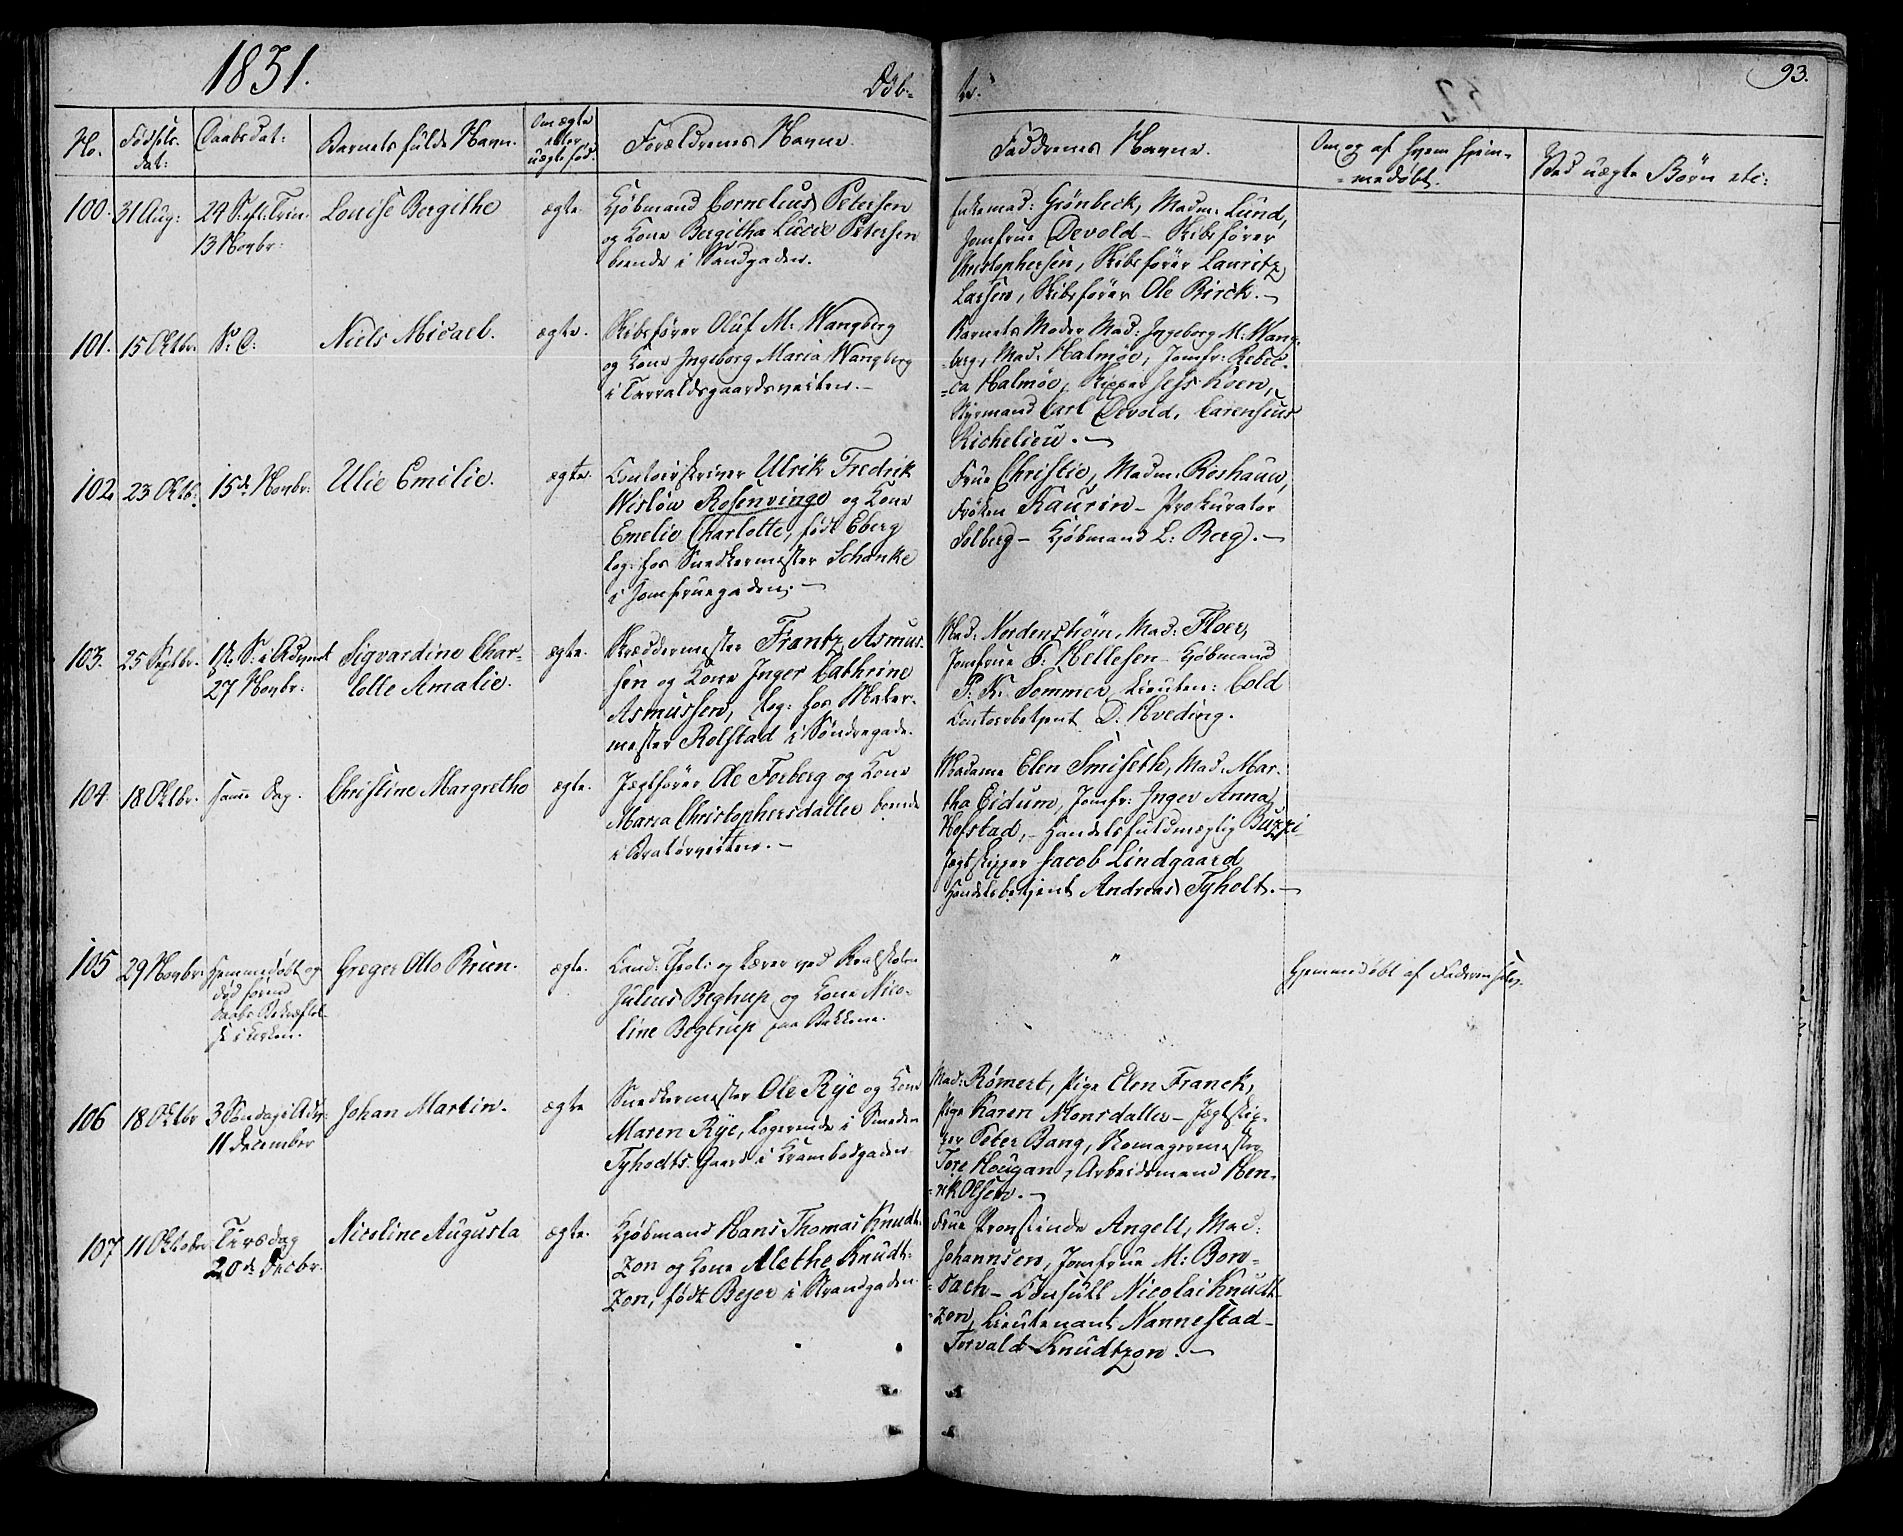 1831.
Døb-
te.
93.
No.
Fødsels
dat:
Daabsdat:
Barnets fulde Navn.
Om ægte
eller
uægte fød.
Forældrenes Navne.
Faddrenes Navne.
Om og af hvem hjem-
medøbt.
Ved uægte Børn etc:
100.
31 Aug:
24 S: eft: Trin.
13 Novbr:
Louise Bergithe
ægte.
Kjøbmand Cornelius Petersen
og Kone Bergitha Lucie Petersen
boende i Sandgaden.
Enkemad: Grønbeck, Madm: Lund,
Jomfrue Devold - Skibsfører
Christophersen, Skibsfører Lauritz
Larsen, Skibsfører Ole Birck. -
101.
15 Oktbr.
S: D:
Niels Micael.
ægte.
Skibsfører Oluf M: Wangberg
og Kone Ingeborg Maria Wangberg
i Tarraldsgaardsveiten. -
Barnets Moder Mad: Ingeborg M: Wang-
berg, Mad: Halmøe, Jomfr: Rebec-
ca Halmøe, Skipper Jess Koen,
Styrmand Carl Devold, Carensius
Richelieu. -
102.
23 Oktb.
15de Novbr:
Ulie Emilie.
ægte.
Contoirskriver Ulrik Fredrik
Wisløw Rosenvinge og Kone
Emelie Charlotte, født Eberg
log: hos Snedkermester Schanke
i Jomfruegaden. -
Frue Christie, Madm: Roshauw,
Frøken Kaurin - Prokurator
Solberg - Kjøbmand L: Berg). -
103.
25 Septbr.
1ste S: i Advent
27 Novbr:
Sigvardine Char-
lotte Amalie.
ægte.
Skreddermester Frantz Asmus-
sen og Kone Inger Cathrine
Asmussen, log: hos Maler-
mester Rolstad i Søndregade.
Mad: Nordenstrøm, Mad: Floer,
Jomfrue F: Hellesen - Kjøbmand
P. K. Sommer, Lieuten: Cold
Contoirbetjent D. Hveding.
104.
18 Oktbr.
samme Dag.
Christine Margrethe
ægte.
Jægtfører Ole Forberg og Kone
Maria Christophersdatter boende
i Bratørveiten. -
Madame Elen Smiseth, Mad: Mar-
tha Eidum, Jomfr: Inger Anna
Hofstad, - Handelsfuldmægtig Buzzi
Jægtskipper Jacob Lindgaard
Handelsbetjent Andreas Tyholt. -
105
29 Novbr.
Hjemmedøbt og
død forend
Daabs Bekræftel-
se i Kirken.
Greger Otto Bruun.
ægte.
Cand: Theol: og Lærer ved Realskolen
Julius Begtrup og Kone Nico-
line Begtrup paa Bakkene.
"
Hjemmedøbt af Faderen selv.
106
18 Oktbr
3 Søndag i Adv:
11 December
Johan Martin.
ægte
Snedkermester Ole Rye og Kone
Maren Rye, logerende i Smeden
Tyholts Gaard i Krambodgaden.
Mad: Rømert, Pige Elen Franck,
Pige Karen Monsdatter - Jægtskip-
per Peter Bang, Skomagermester
Tore Hougan, Arbeidsmand Hen-
rik Olsen. -
107
11 Oktober
Tirsdag
20de Decbr.
Nicoline Augusta
ægte.
Kjøbmand Hans Thomas Knudt-
zon og Kone Alethe Knudt-
zon, født Bejer i Strandgaden.
Frue Provstinde Angell, Mad:
Johannsen, Jomfrue M: Bon-
sach - Consull Nicolai Knudt-
zon, Lieutenant Nannestad -
Torvald Knudtzon. -